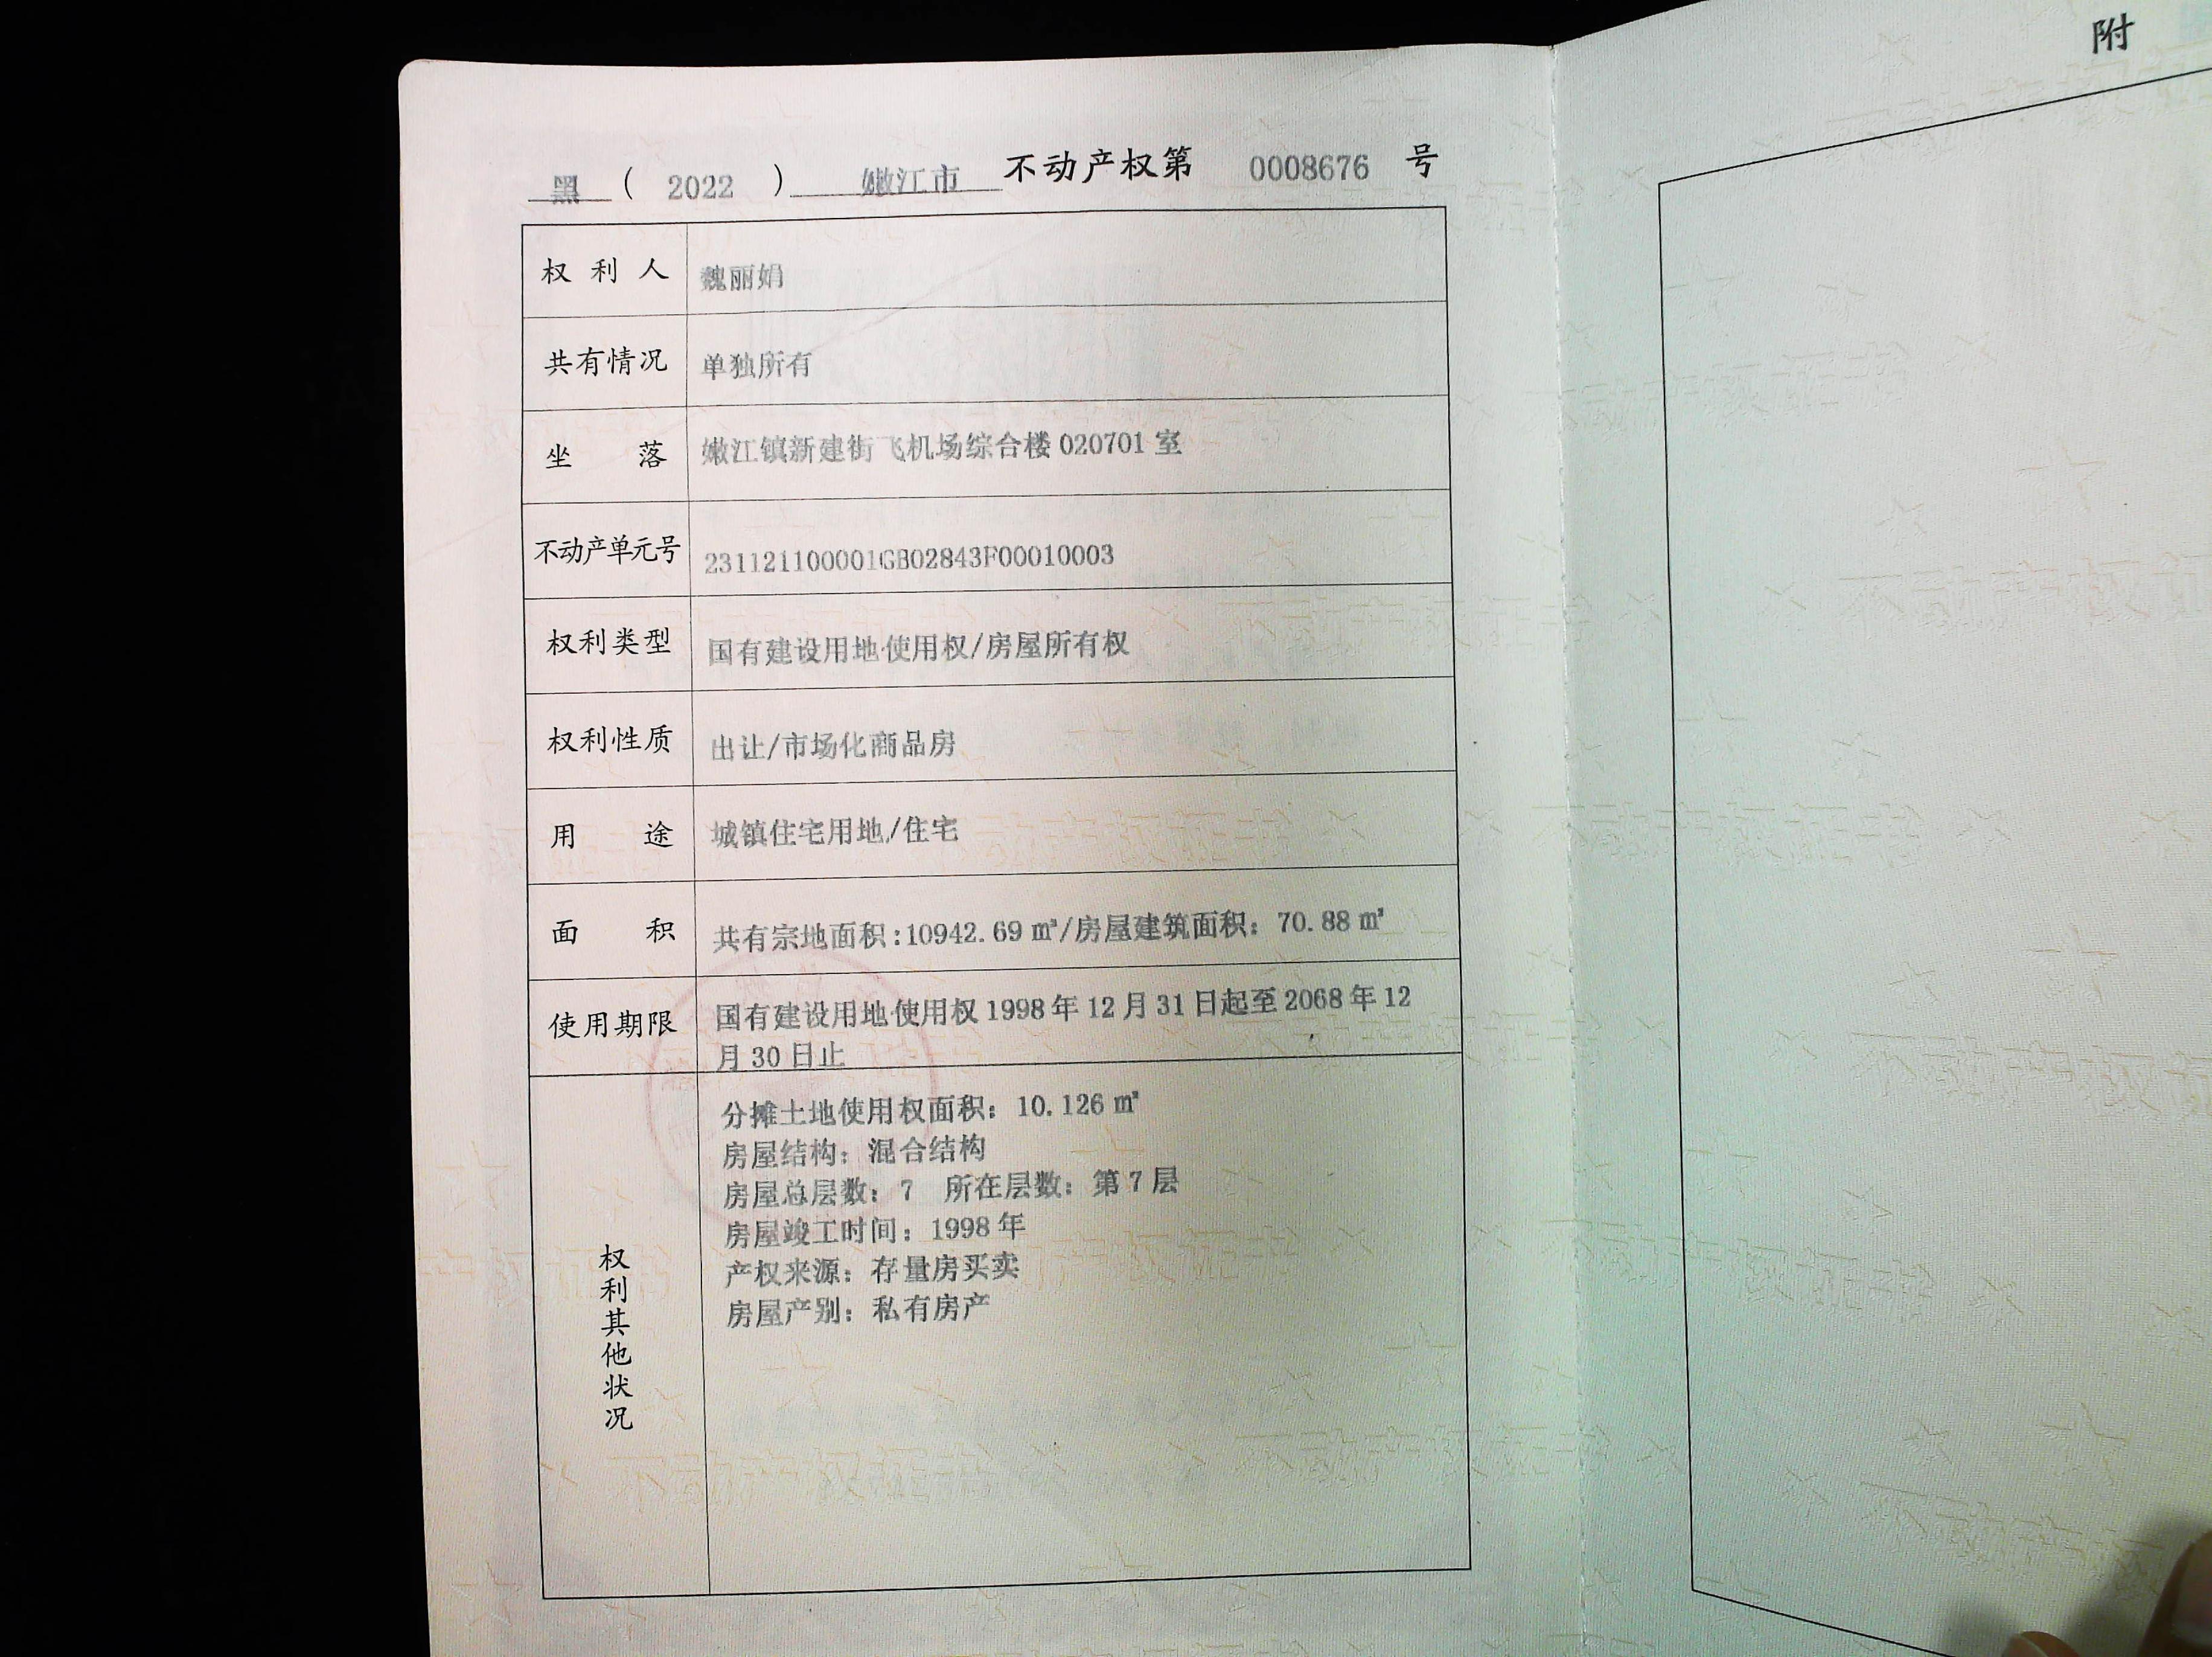 附
黑 ( 2022 ) 嫩江市 不动产权第 0008676 号
权利人 魏丽娟
共有情况 单独所有
坐落 嫩江镇新建街飞机场综合楼020701室
不动产单元号 231121100001GB02843F00010003
权利类型 国有建设用地使用权/房屋所有权
权利性质 出让/市场化商品房
用途 城镇住宅用地/住宅
面积 共有宗地面积:10942.69㎡/房屋建筑面积: 70.88㎡
使用期限 国有建设用地使用权1998年12月31日起至2068年12
月30日止
权利其他状况
分摊土地使用权面积: 10.126㎡
房屋结构: 混合结构
房屋总层数: 7 所在层数: 第7层
房屋竣工时间: 1998年
产权来源: 存量房买卖
房屋产别: 私有房产